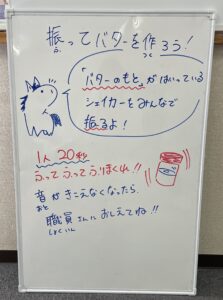 振ってバターを作ろう！
ふ つく
「バターのもと」がはいっている
シェイカーをみんなで
振るよ！
1人 20秒
ふって ふって ふりまくれ!!
音がきこえなくなったら、
おと
職員さんにおしえてね!!
しょくいん